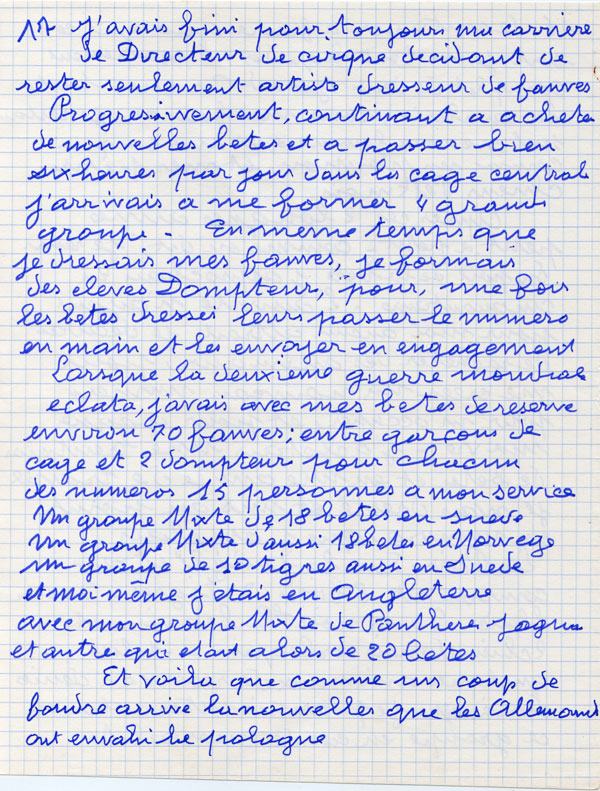 17 J'avais fini pour toujours ma carriere
de Directeur de cirque decidant de
rester seulement artiste dresseur de fauves
Progresivement, continuant a acheter
de nouvelles betes et a passer bien
six heures par jour dans la cage central
j'arrivais a me former 4 grands
groupe - En meme temps que
je dressais mes fauves, je formais
des eleves Dompteur, pour, une fois
les betes dressei leurs passer le numero
en main et les envoyer en engagement
Lorsque la deuxieme guerre mondiale
eclata, j'avais avec mes betes de reserve
environ 70 fauves; entre garçons de
cage et 2 dompteur pour chacun
des numeros 15 personnes a mon service
Un groupe Mixte de 18 betes en suede
un groupe Mixte d'aussi 18 betes en Norvege
un groupe de 10 tigres aussi en Suede
et moi même j'etais en Angleterre
avec mon groupe Mixte de Panthere jagua
et autre qui etait alors de 20 bêtes
Et voila que comme un coup de
foudre arrive la nouvelles que les Allemands
ont envahi la pologne